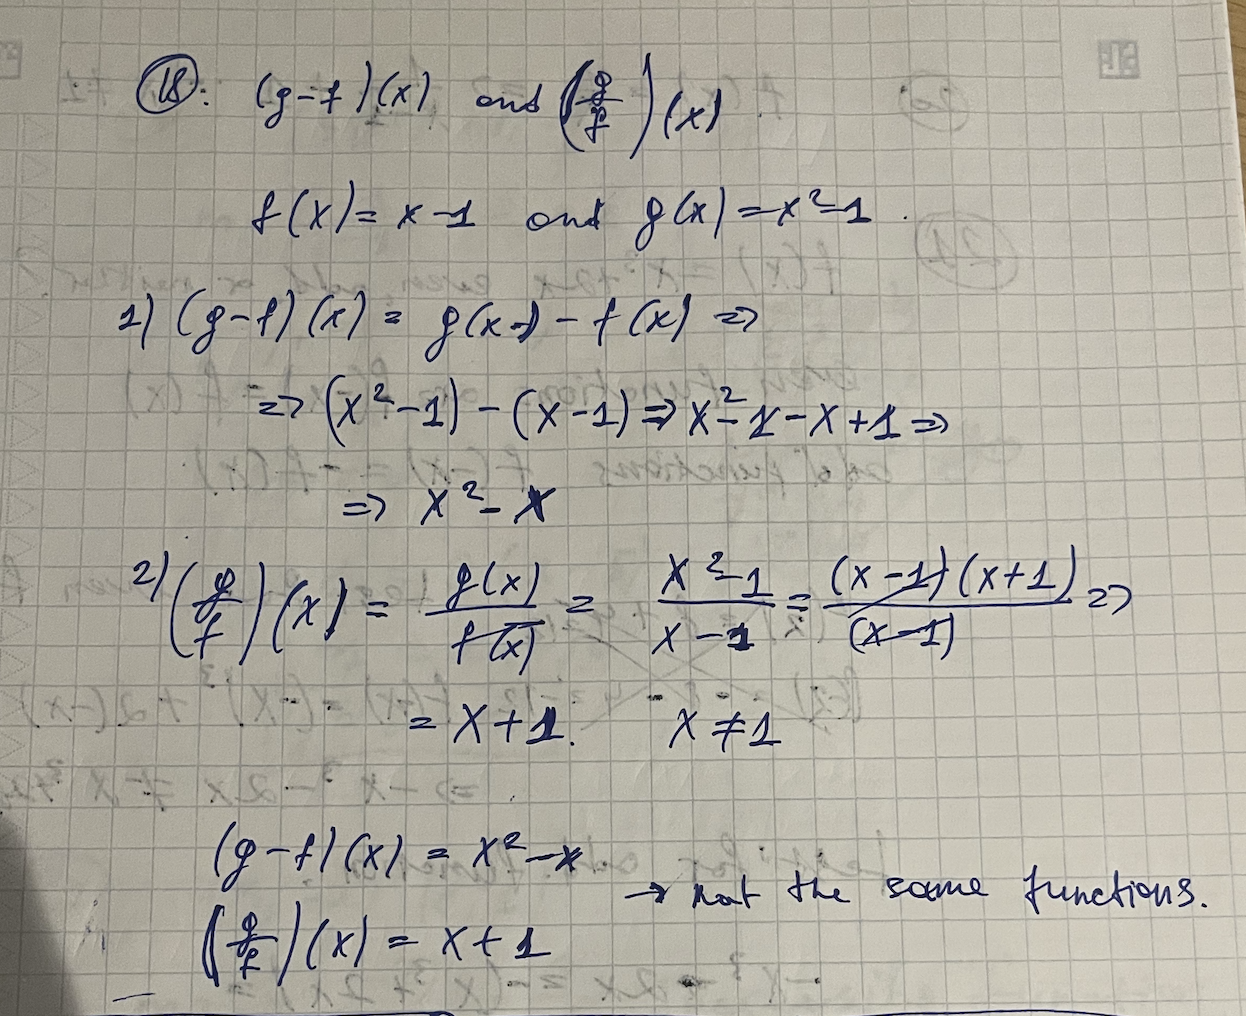 18. (g-f)(x) and (g/f)(x).
f(x) = x-1 and g(x) = x²-1.
1) (g-f)(x) = g(x) - f(x) =>
=> (x²-1) - (x-1) => x²-1-x+1 =>
=> x²-x
2) (g/f)(x) = g(x)/f(x) = x²-1/x-1 = (x-1)(x+1)/(x-1) =>
= x+1. x≠1
(g-f)(x) = x²-x
→ not the same functions.
(g/f)(x) = x+1